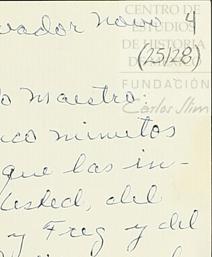 vador novo 4
CENTRO DE
ESTUDIOS
DE HISTORIA
DE MÉXICO
(25/28)
FUNDACIÓN
Carlos Slim
o Maestro:
co minutos
que las in-
Usted, del
y Freg y del